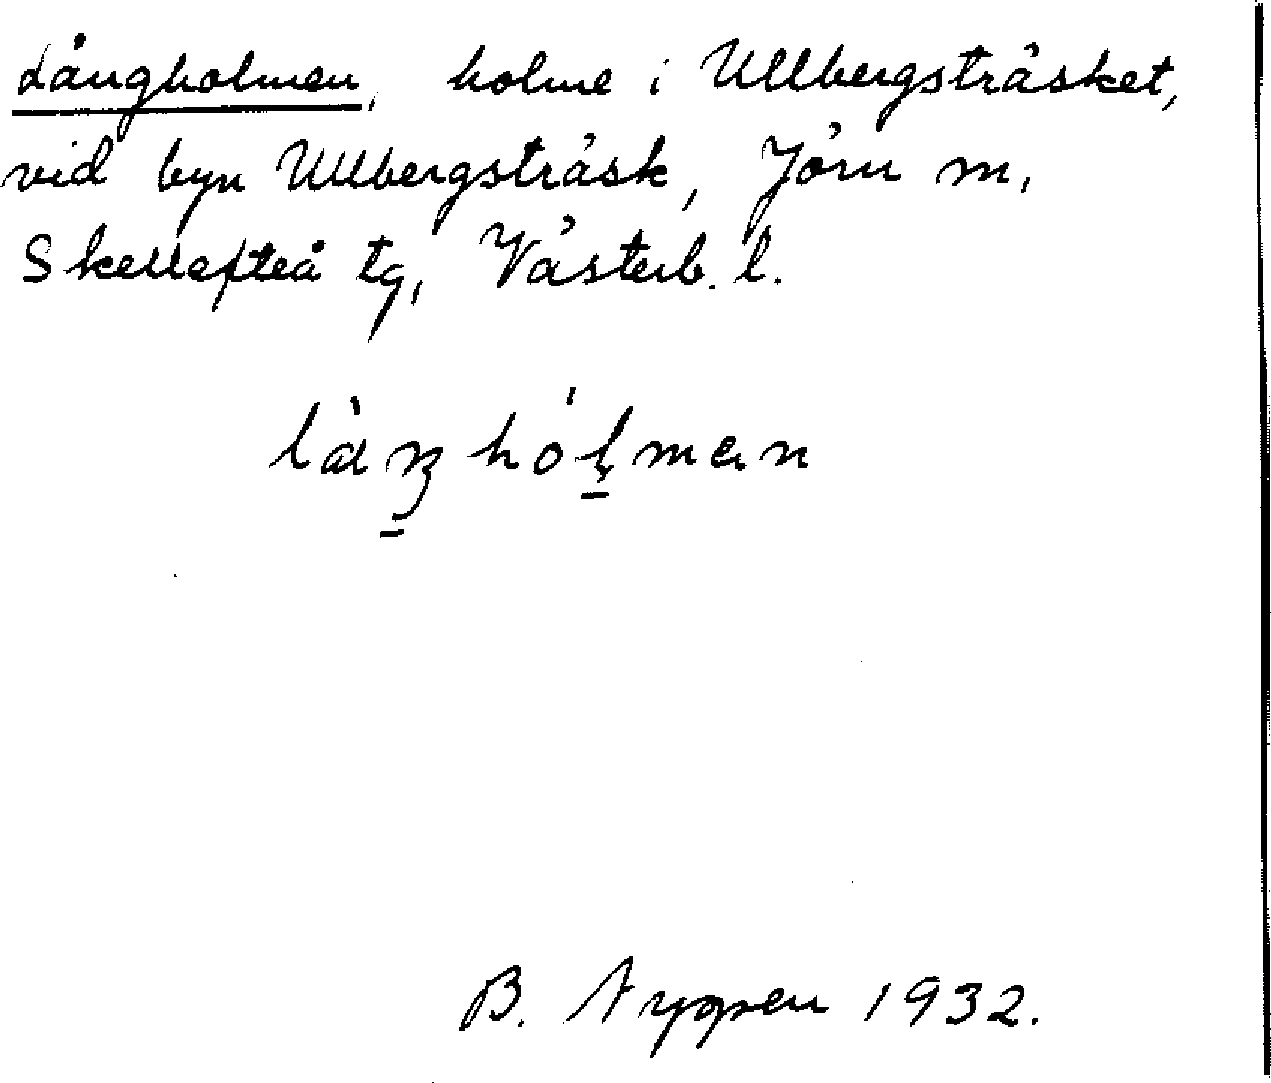 Långholmen, holme i Ullbergsträsket,
vid byn Ullbergsträsk, Jörn m,
Skellefteå tg, Västerb. l.
làŋhól̥mən
B. Nygren 1932.